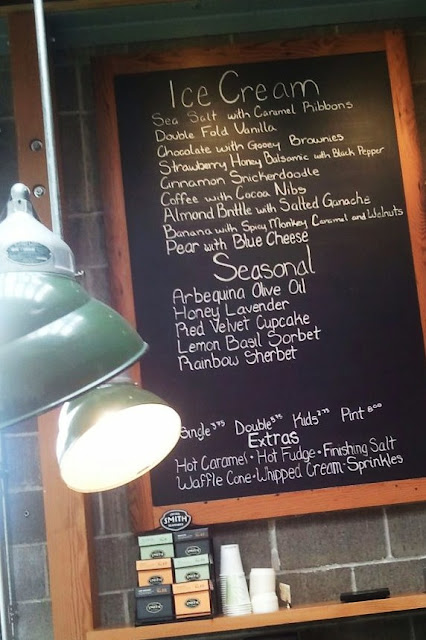 Ice Cream
Sea Salt with Caramel Ribbons
Double Fold Vanilla
Chocolate with Gooey Brownies
Strawberry Honey Balsamic with Black Pepper
Cinnamon Snickerdoodle
Coffee with Cocoa Nibs
Almond Brittle with Salted Ganache
Banana with Spicy Monkey Caramel and Walnuts
Pear with Blue Cheese
Seasonal
Arbequina Olive Oil
Honey Lavender
Red Velvet Cupcake
Lemon Basil Sorbet
Rainbow Sherbet
Single 3.75 Double 5.75 Kids 2.75 Pint 8.00
Extras
Hot Caramel · Hot Fudge · Finishing Salt
Waffle Cone · Whipped Cream · Sprinkles
SMITH